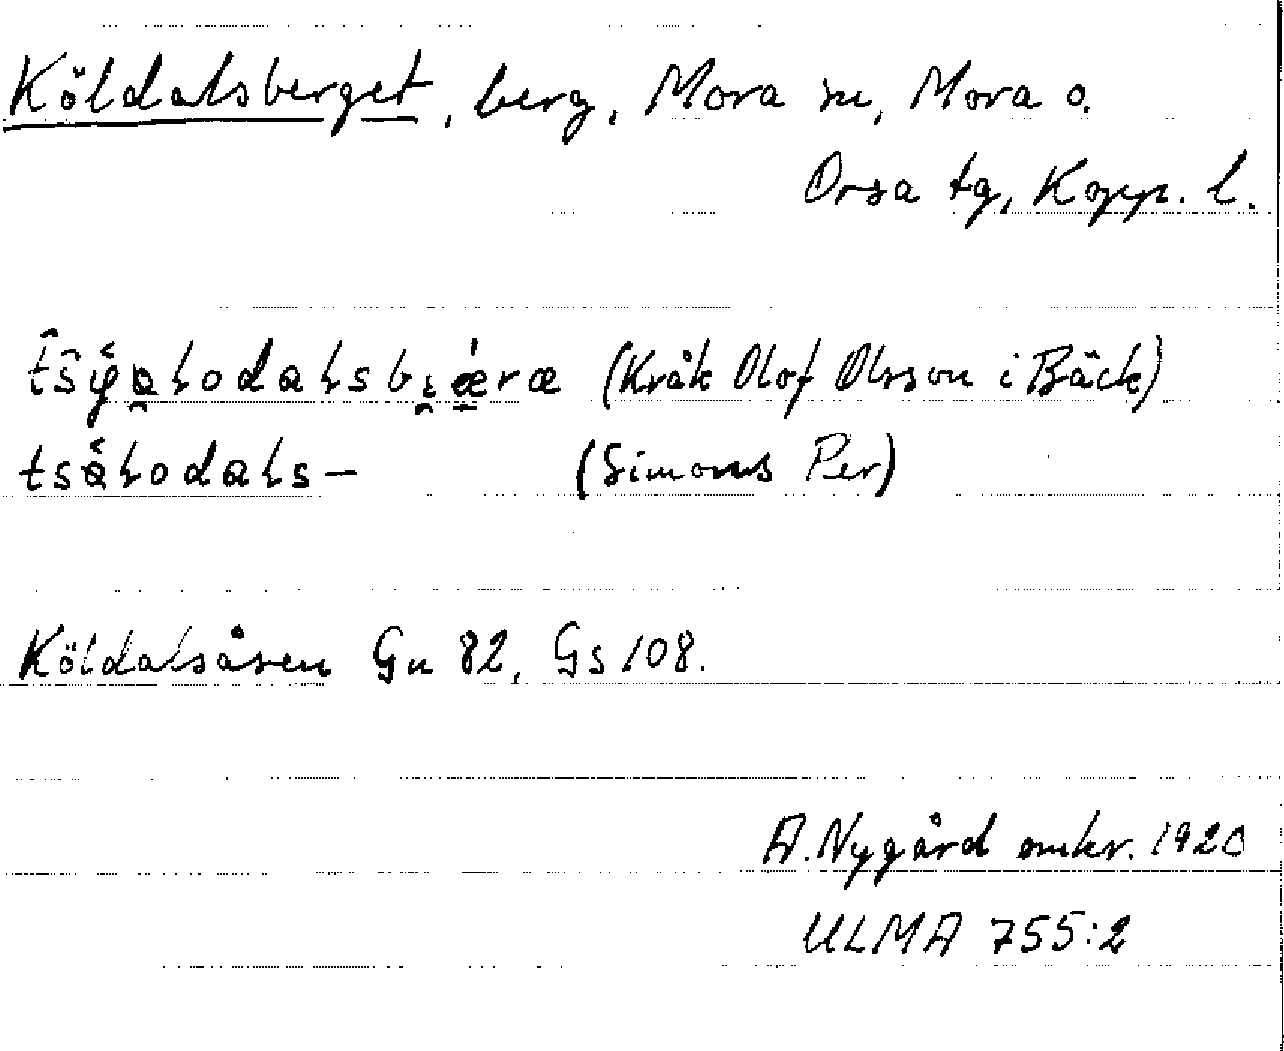 Köldalsberget, berg, Mora sn, Mora o.
Orsa tg, Kopp. l.
(Kråk Olof Olsson i Bäck)
(Simons Per)
Köldalsåsen Gu 82, Gs 108.
A. Nygård omkr. 1920
ULMA 755:2